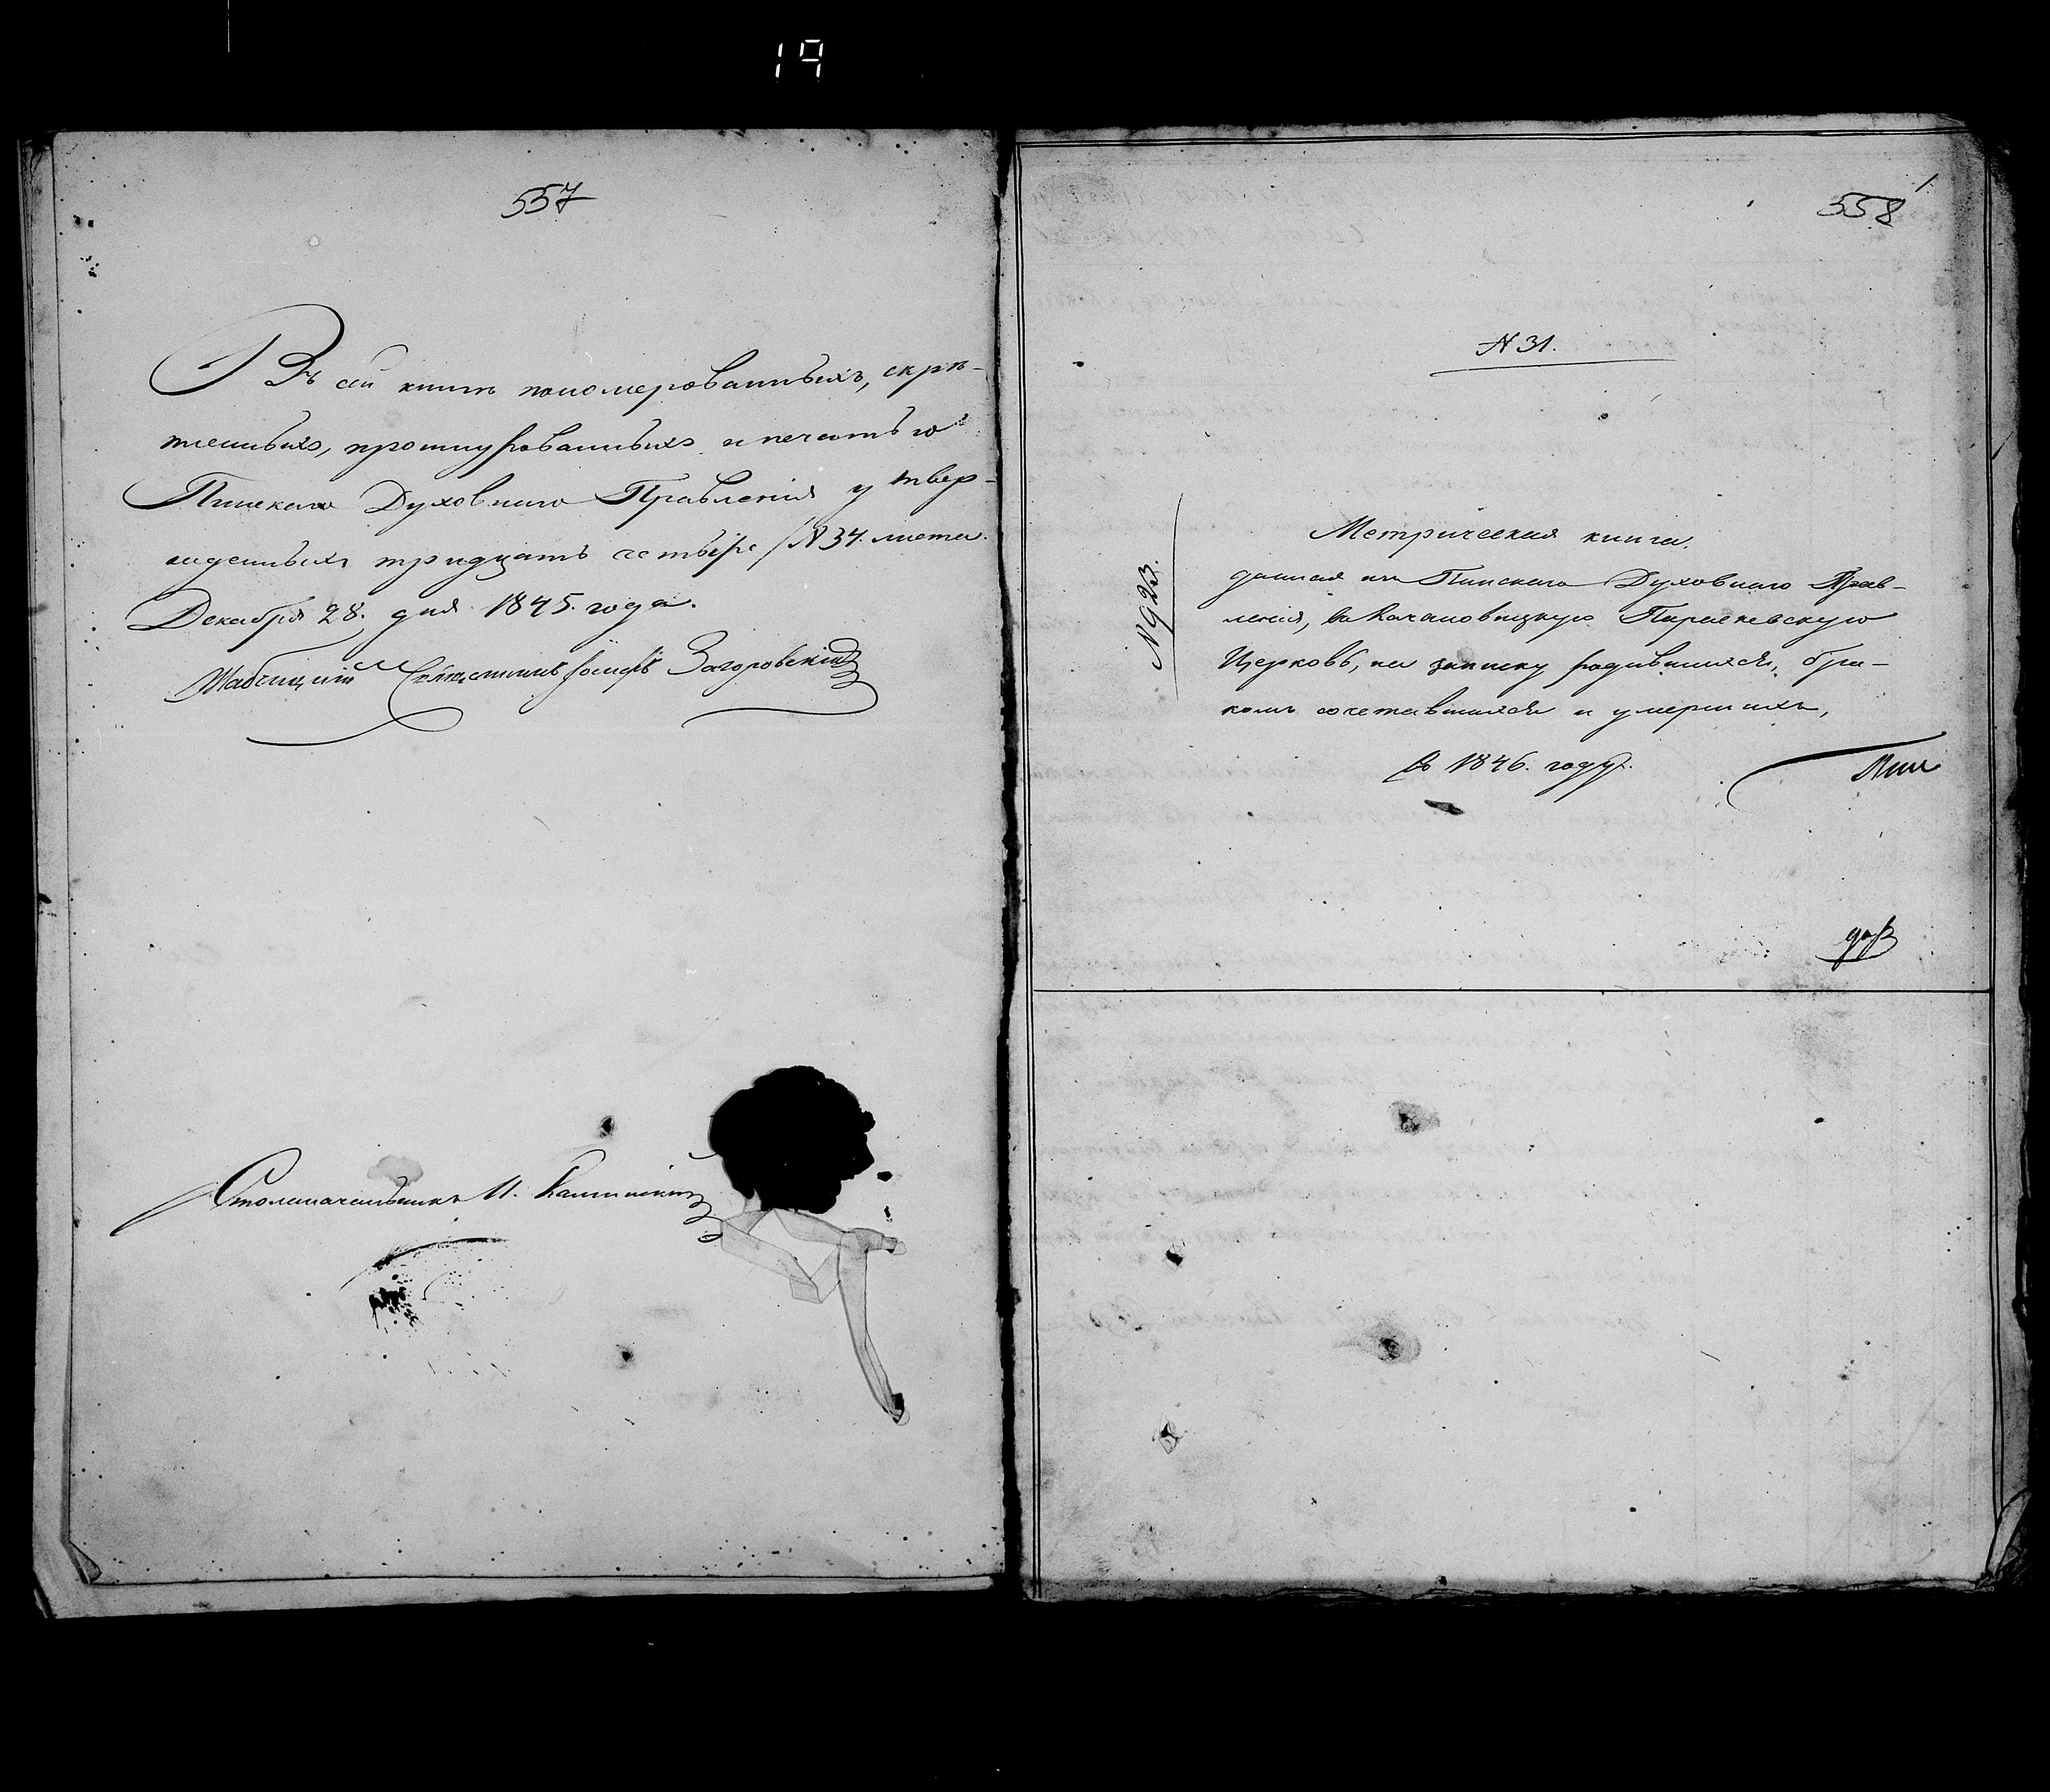 19
557
Въ сей книгѣ пономерованныхъ, скрѣ-
пленныхъ, прошнурованныхъ и печатью
Пинскаго Духовнаго Правленія утвер-
жденныхъ тридцать четыре /N 34. листа.
Декабря 28. дня 1845. года.
Священникъ Іосифъ Загоровскій
Столоначальникъ И.
558
N 31.
N 923.
Метрическая книга.
данная изъ Пинскаго Духовнаго Прав-
ленія, въ Качановицкую Параскевскую
Церковь, на записку родившихся, бра-
комъ сочетавшихся и умершихъ,
въ 1846. году.
Пин